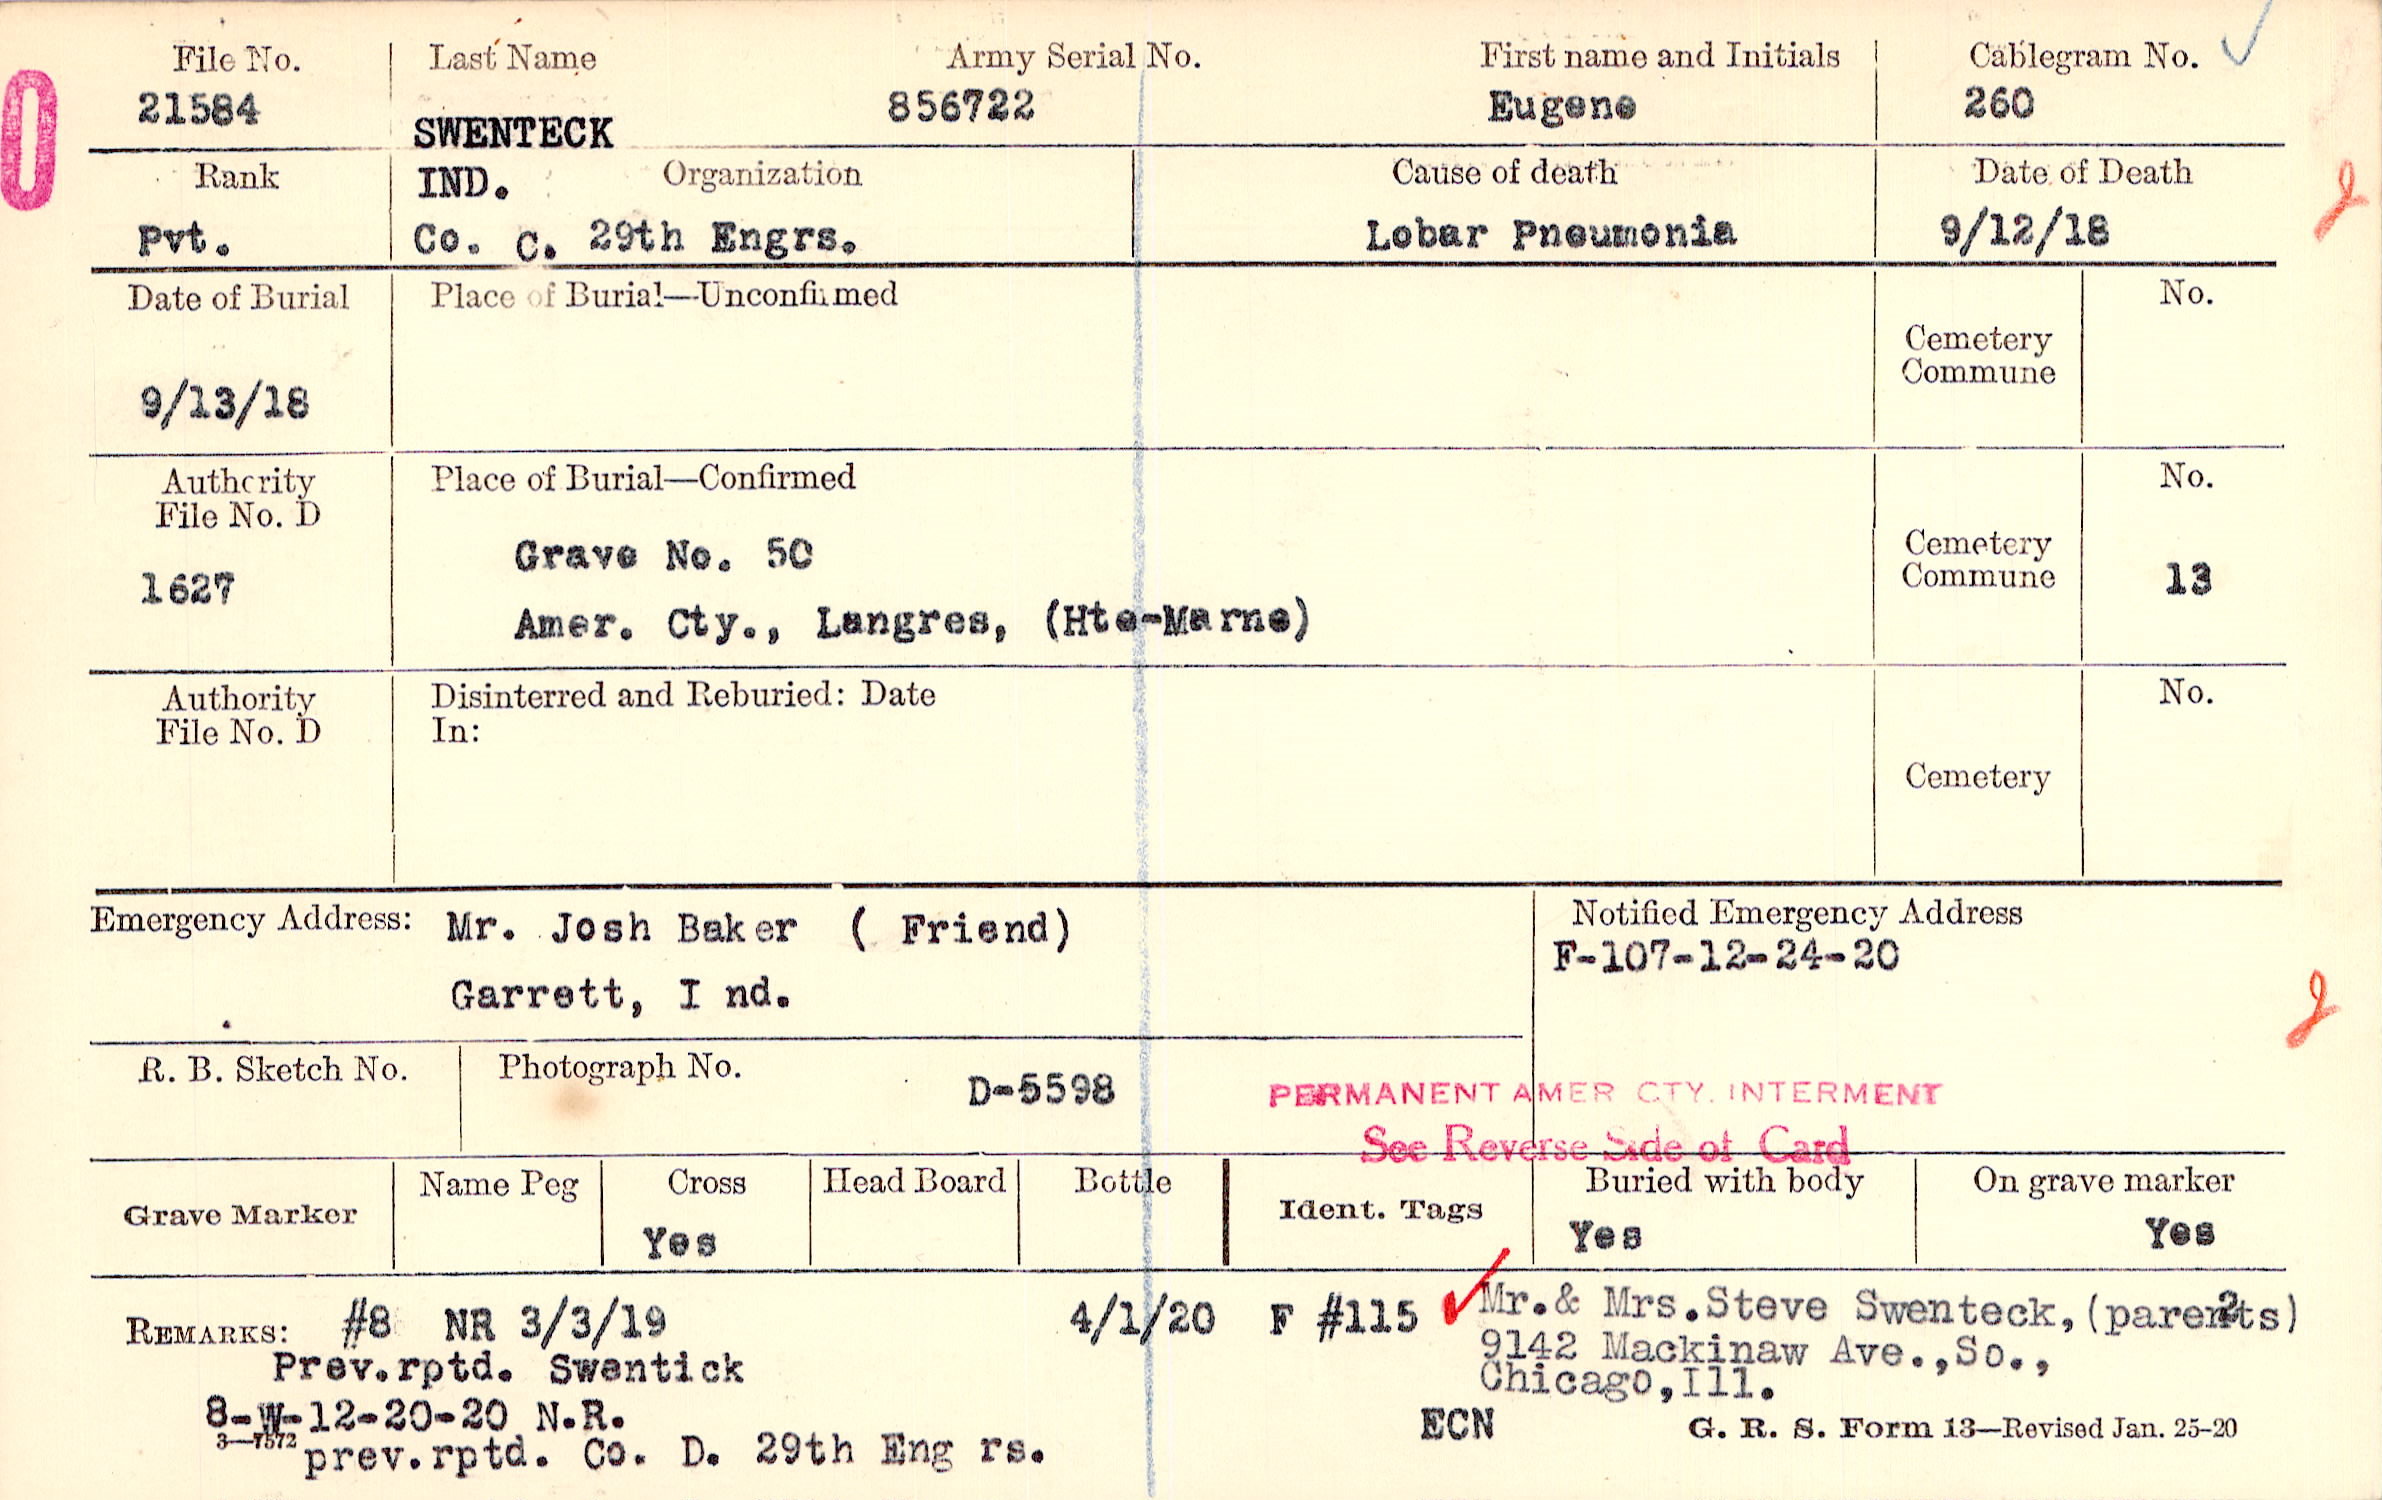 File No. Last Name Army Serial No. First name and Initials Cablegram No.
21584 SWENTECK 856722 Eugene 260
Rank IND. Organization Cause of death Date of Death
Pvt. Co. C. 29th Engrs. Lobar Pneumonia 9/12/18
Date of Burial Place of Burial—Unconfirmed No.
Cemetery
Commune
9/13/18
Authority Place of Burial—Confirmed No.
File No. D
Grave No. 50 Cemetery
1627 Commune 13
Amer. Cty., Langres, (Hte-Marne)
Authority Disinterred and Reburied: Date No.
File No. D In:
Cemetery
Emergency Address: Mr. Josh Baker ( Friend) Notified Emergency Address
F-107-12-24-20
Garrett, I nd.
R. B. Sketch No. Photograph No. D-5598
PERMANENT AMER CTY. INTERMENT
See Reverse Side of Card
Grave Marker Name Peg Cross Head Board Bottle Ident. Tags Buried with body On grave marker
Yes Yes Yes
REMARKS: #8 NR 3/3/19 4/1/20 F #115 Mr.& Mrs.Steve Swenteck,(parents)
9142 Mackinaw Ave.,So.,
Prev.rptd. Swentick Chicago,Ill.
8-W-12-20-20 N.R. ECN G. R. S. Form 13—Revised Jan. 25-20
3—7572
prev.rptd. Co. D. 29th Eng rs.